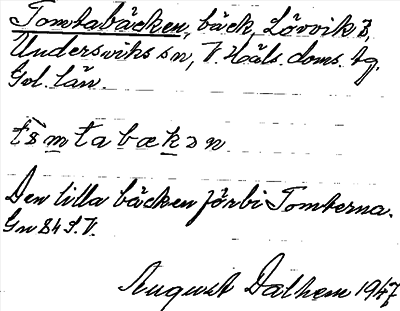 Tomtabäcken, bäck, Lörvik 3,
Undersviks sn, V. Häls. doms. tg.
Gvl. län.
Den lilla bäcken förbi Tomterna.
Gn 84 S.V.
August Dalhem 1947